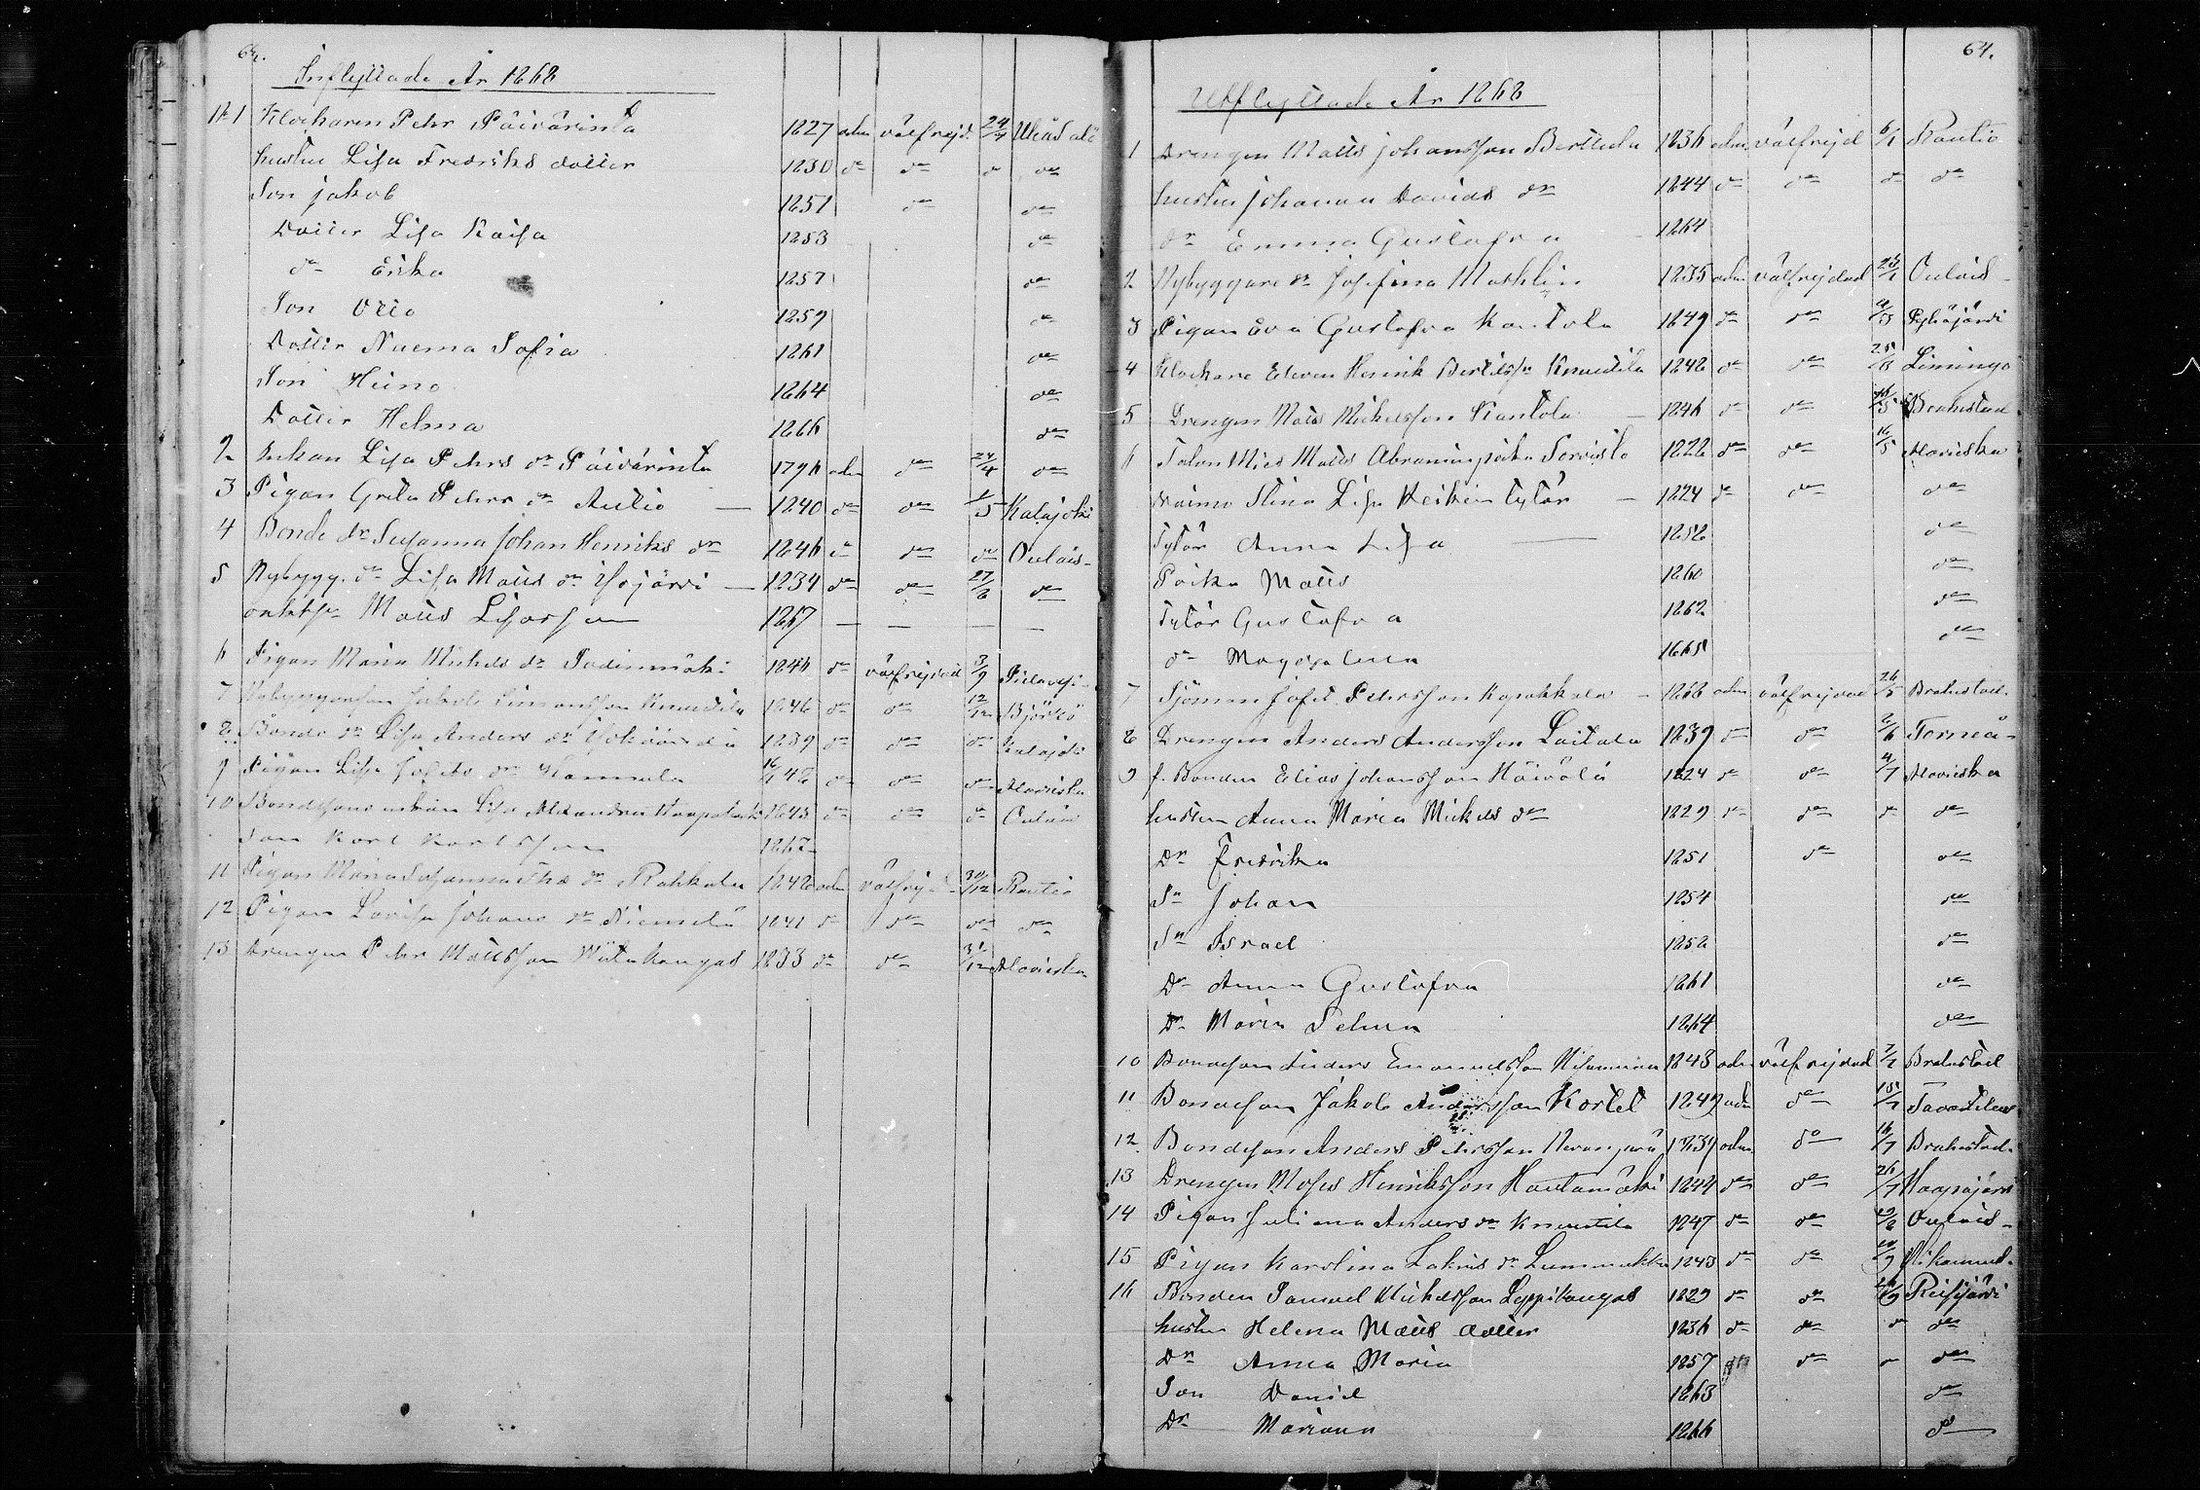 64.
Inflyttade År 1868
No 1 Klockaren Pehr Päivärinta 1827 adm välfrejd. 24/4 Uleåsalo
hustru Lisa Fredriks dotter 1830 do do do do
Son Jakob 1851 do do
Dotter Lisa Kaisa 1853 do
do Erika 1857 do
Son Otto 1859 do
Dotter Naema Sofia 1861 do
Son Heino 1864 do
Dotter Helma 1866 do
2 Enkan Lisa Pehrs dr Päivärinta 1796 adm do 24/4 do
3 Pigan Greta Pehrs dr Autio 1840 do do 1/5 Kalajoki
4 Bonde dr Susanna Johan Henriks dr 1846 do do do Oulais
5 Nybygg. dr Lisa Matts dr Isojärvi 1834 do do 27/6 do
Matts Lisasson 1867 — — — —
6 Pigan Maria Mickels dr 1846 do välfrejdad 3/9
7 Nybyggareson Jakob Simonsson Knuutila 1846 do do 12/12 Björkö
8 Bonde dr Lisa Anders dr 1839 do do do Kalajoki
9 Pigan Lisa Josefs dr Hannula 16/6 48 do do do Alavieska
10 Bondesons enkan Lisa Alexandra 1845 do do do Oulais
Son Karl Karlsson 1867
11 Pigan Maria Johanna dr Rahkala 1848 adm välfrejd 30/12 Rautio
12 Pigan Lovisa Johans dr Niemelä 1841 do do do do
13 Drengen Pehr Mattsson 1833 do do 31/12 Alavieska
64.
Utflyttade År 1868
1 Drengen Matts Johansson Berttula 1836 adm välfrejd 6/1 Rautio
hustru Johanna Davids dr 1844 do do do do
dr Emma Gustafva 1864
2 Nybyggare dr Josefina Mathlin 1835 adm välfrejdad Oulais
3 Pigan Eva Gustafva Kantola 1849 do do Pyhäjärvi
4 Klockare Eleven Henrik Bertilss. Knuutila 1848 do do Limingo
5 Drengen Matts Mickelsson Kantola 1846 do do Brahestad
6 Talon Mies Matts Abraminpoika Sorvisto 1828 do do 16/5 Alavieska
Waimo Stina Lisa Heikin tytär 1824 do do do
Tytär Anna Lisa 1858 do
Poika Matts 1860 do
Tytär Gustafva 1862 do
do Magdalena 1865 do
7 Sjöman Josef Pehrsson Kopakkala adm välfrejdad 26/5 Brahestad
8 Drengen Anders Andersson Laitala 1839 do do 2/6 Torneå
9 f. Bonden Elias Johansson Häivälä 1824 do do 4/7 Alavieska
hustru Anna Maria Mickels dr 1829 do do do do
Dr Fredrika 1851 do do
Sn Johan 1854 do
Sn Israel 1858 do
Dr Anna Gustafva 1861 do
Dr Maria Selma 1864 do
10 Bondeson Anders Emanuelsson 1848 adm välfrejdad 7/7 Brahestad
11 Bondeson Jakob Andersson Kortet 1849 adm do 15/7 Tavastehus
12 Bondeson Anders Pehrsson Nevanperä 1839 adm do 16/7 Brahestad
13 Drengen Moses Henriksson Hautamäki 1844 do do 26/7 Haapajärvi
14 Pigan Juliana Anders dr Knuutila 1847 do do Oulais
15 Pigan Karolina Zakris dr Lummukka 1843 do do
16 Bonden Samuel Mickelsson Leppikangas 1829 do do Reisjärvi
hustru Helena Matts dotter 1836 do do do do
Dr Anna Maria 1857 do do do
Son Daniel 1863 do
Dr Mariana 1866 do